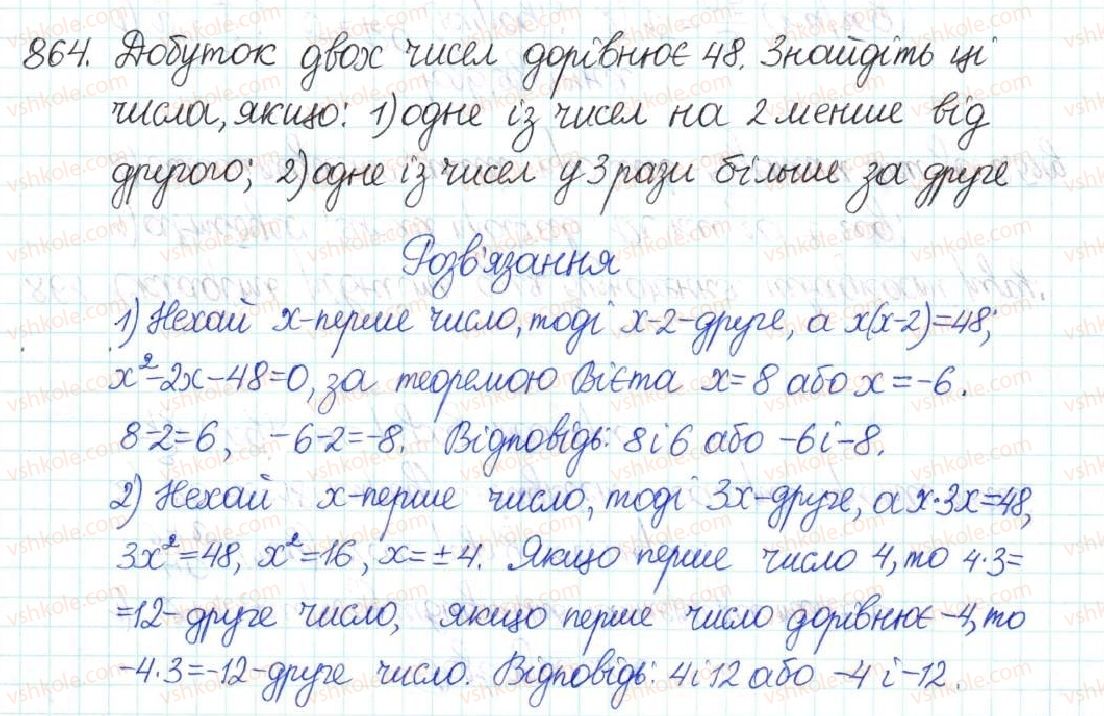 864. Добуток двох чисел дорівнює 48. Знайдіть ці
числа, якщо: 1) одне із чисел на 2 менше від
другого; 2) одне із чисел у 3 рази більше за друге
Розв'язання
1) Нехай x-перше число, тоді x-2-друге, а x(x-2)=48;
x²-2x-48=0, за теоремою Вієта x=8 або x=-6.
8-2=6, -6-2=-8. Відповідь: 8 і 6 або -6 і -8.
2) Нехай x-перше число, тоді 3x-друге, а x·3x=48,
3x²=48, x²=16, x=±4. Якщо перше число 4, то 4·3=
=12-друге число, якщо перше число дорівнює -4, то
-4·3=-12-друге число. Відповідь: 4 і 12 або -4 і -12.